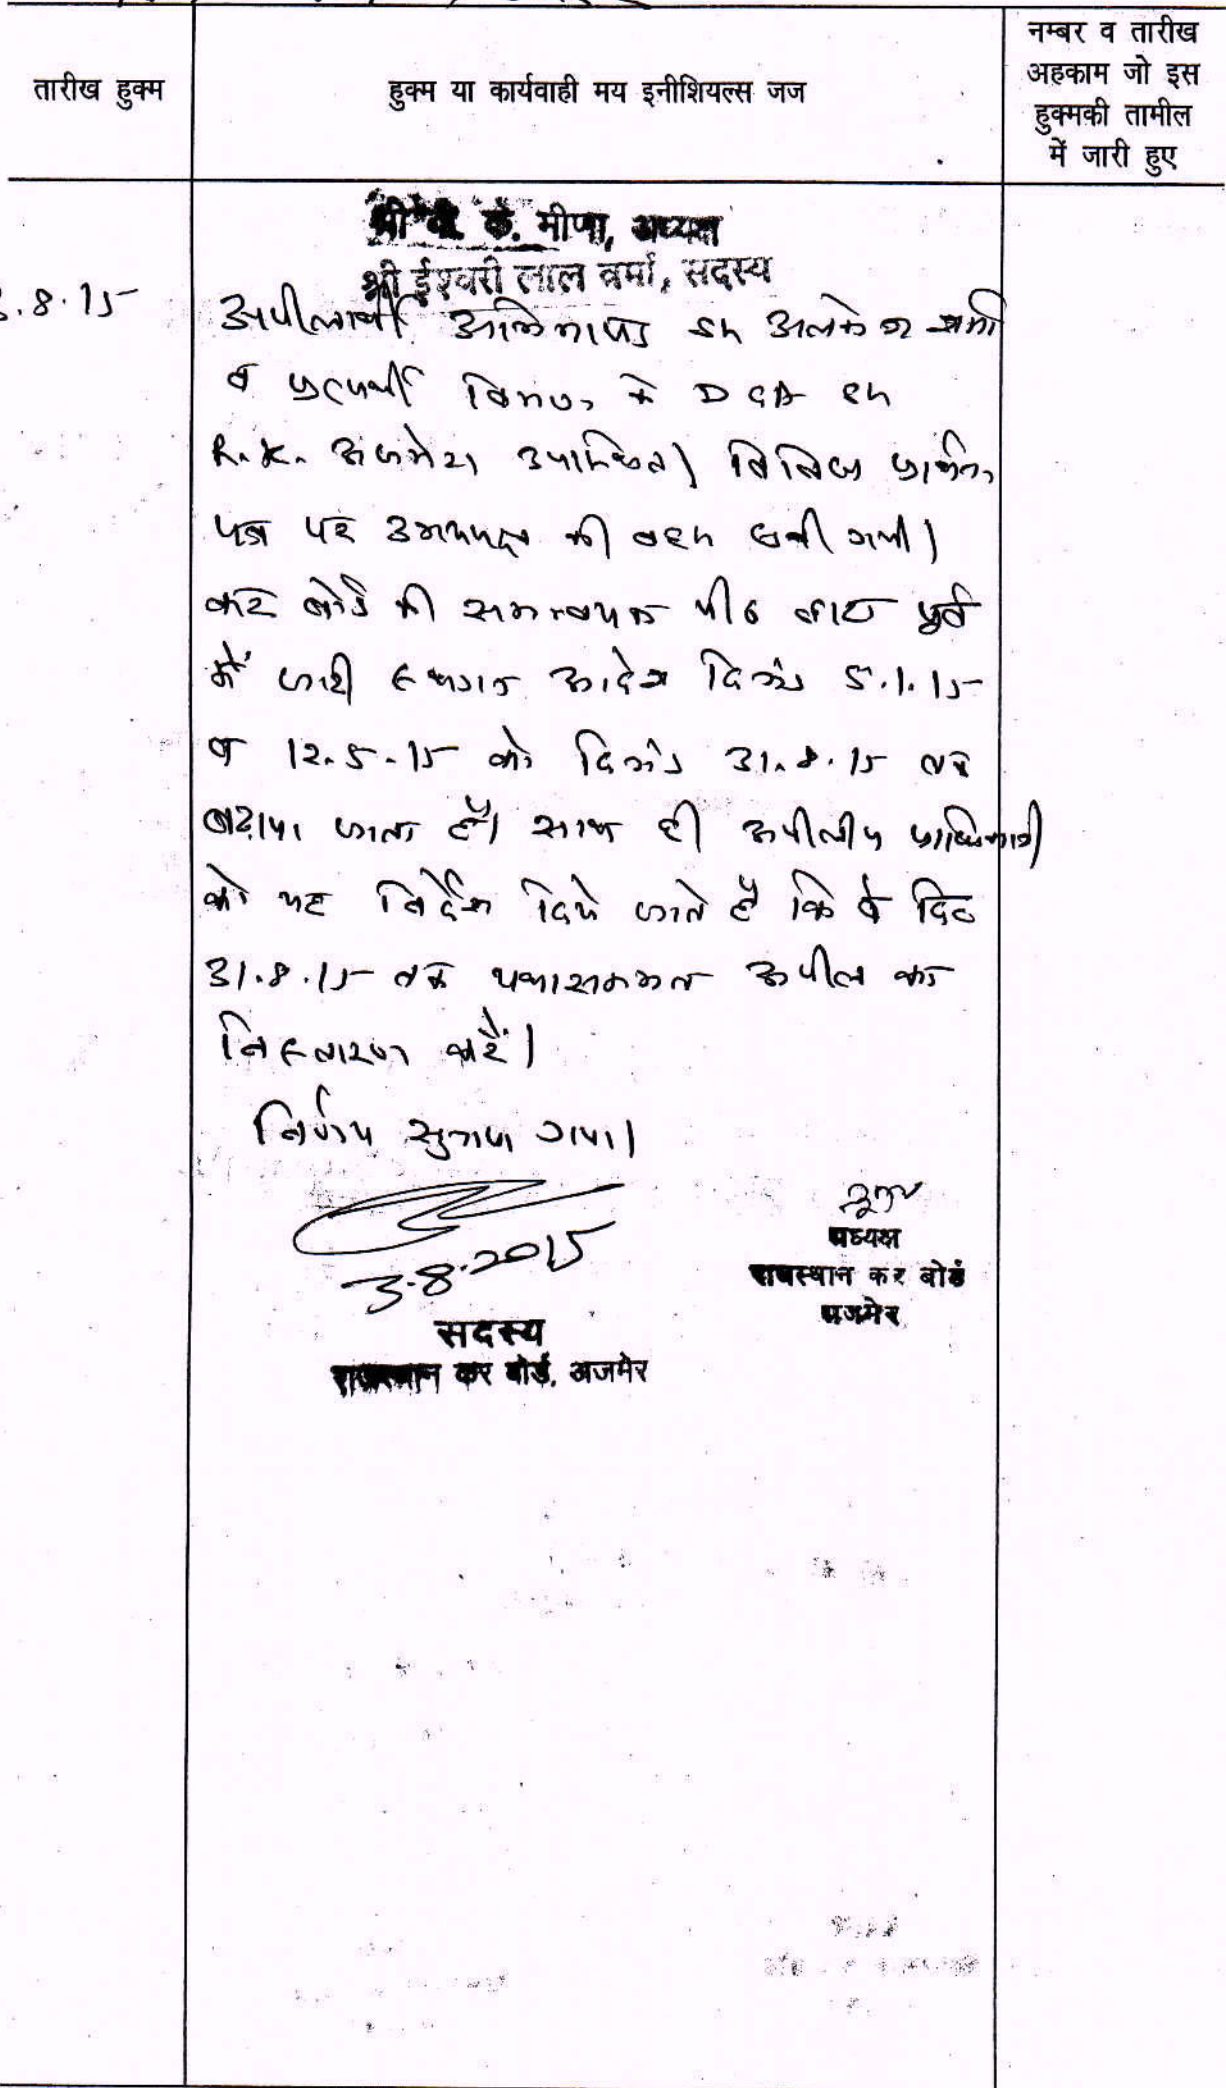 तारीख हुक्म
हुक्म या कार्यवाही मय इनीशियल्स जज
नम्बर व तारीख
अहकाम जो इस
हुक्मकी तामील
में जारी हुए
श्री वी. के. मीणा, अध्यक्ष
श्री ईश्वरी लाल वर्मा, सदस्य
.8.15
अपीलार्थी अभिभाषक श्री अलकेश शर्मा
व प्रत्यर्थी विभाग के DGA श्री
R.K. अजमेरा उपस्थित। विविध प्रार्थना
पत्र पर उभयपक्ष की बहस सुनी गयी।
कर बोर्ड की समन्वयक पीठ द्वारा पूर्व
में जारी स्थगन आदेश दिनांक 5.1.15
व 12.5.15 को दिनांक 31.8.15 तक
बढ़ाया जाता है। साथ ही अपीलीय प्राधिकारी
को यह निर्देश दिये जाते है कि वे दि०
31.8.15 तक यथासम्भव अपील का
निस्तारण करें।
निर्णय सुनाया गया।
3.8.2015
सदस्य
राजस्थान कर बोर्ड, अजमेर
अध्यक्ष
राजस्थान कर बोर्ड
अजमेर